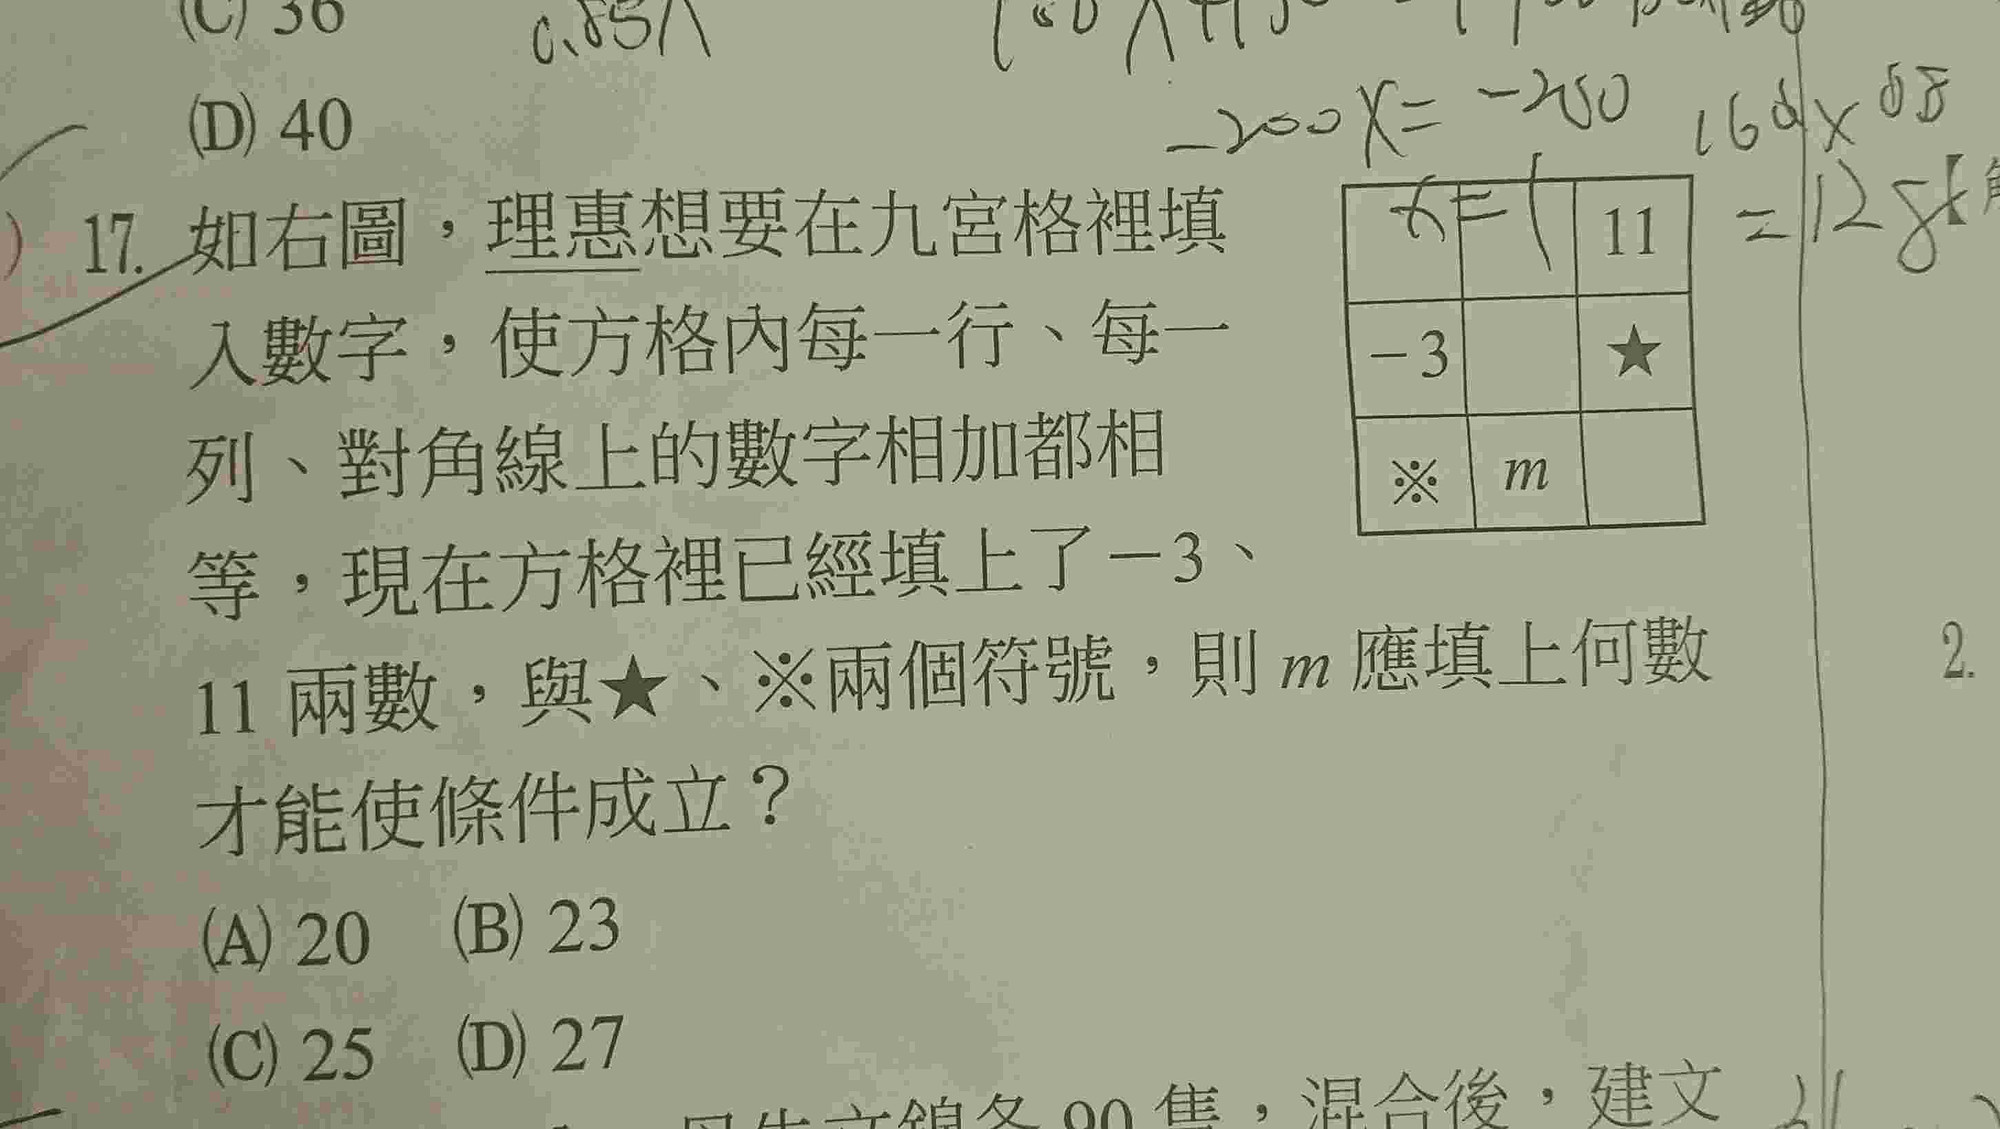 (C) 36
0.85
(D) 40
-200x=-200
x=1
17. 如右圖，理惠想要在九宮格裡填
入數字，使方格內每一行、每一
列、對角線上的數字相加都相
等，現在方格裡已經填上了－3、
11 兩數，與★、※兩個符號，則 m 應填上何數
才能使條件成立？
11
－3 ★
※ m
(A) 20 (B) 23
(C) 25 (D) 27
各 90 隻，混合後，建文
2.